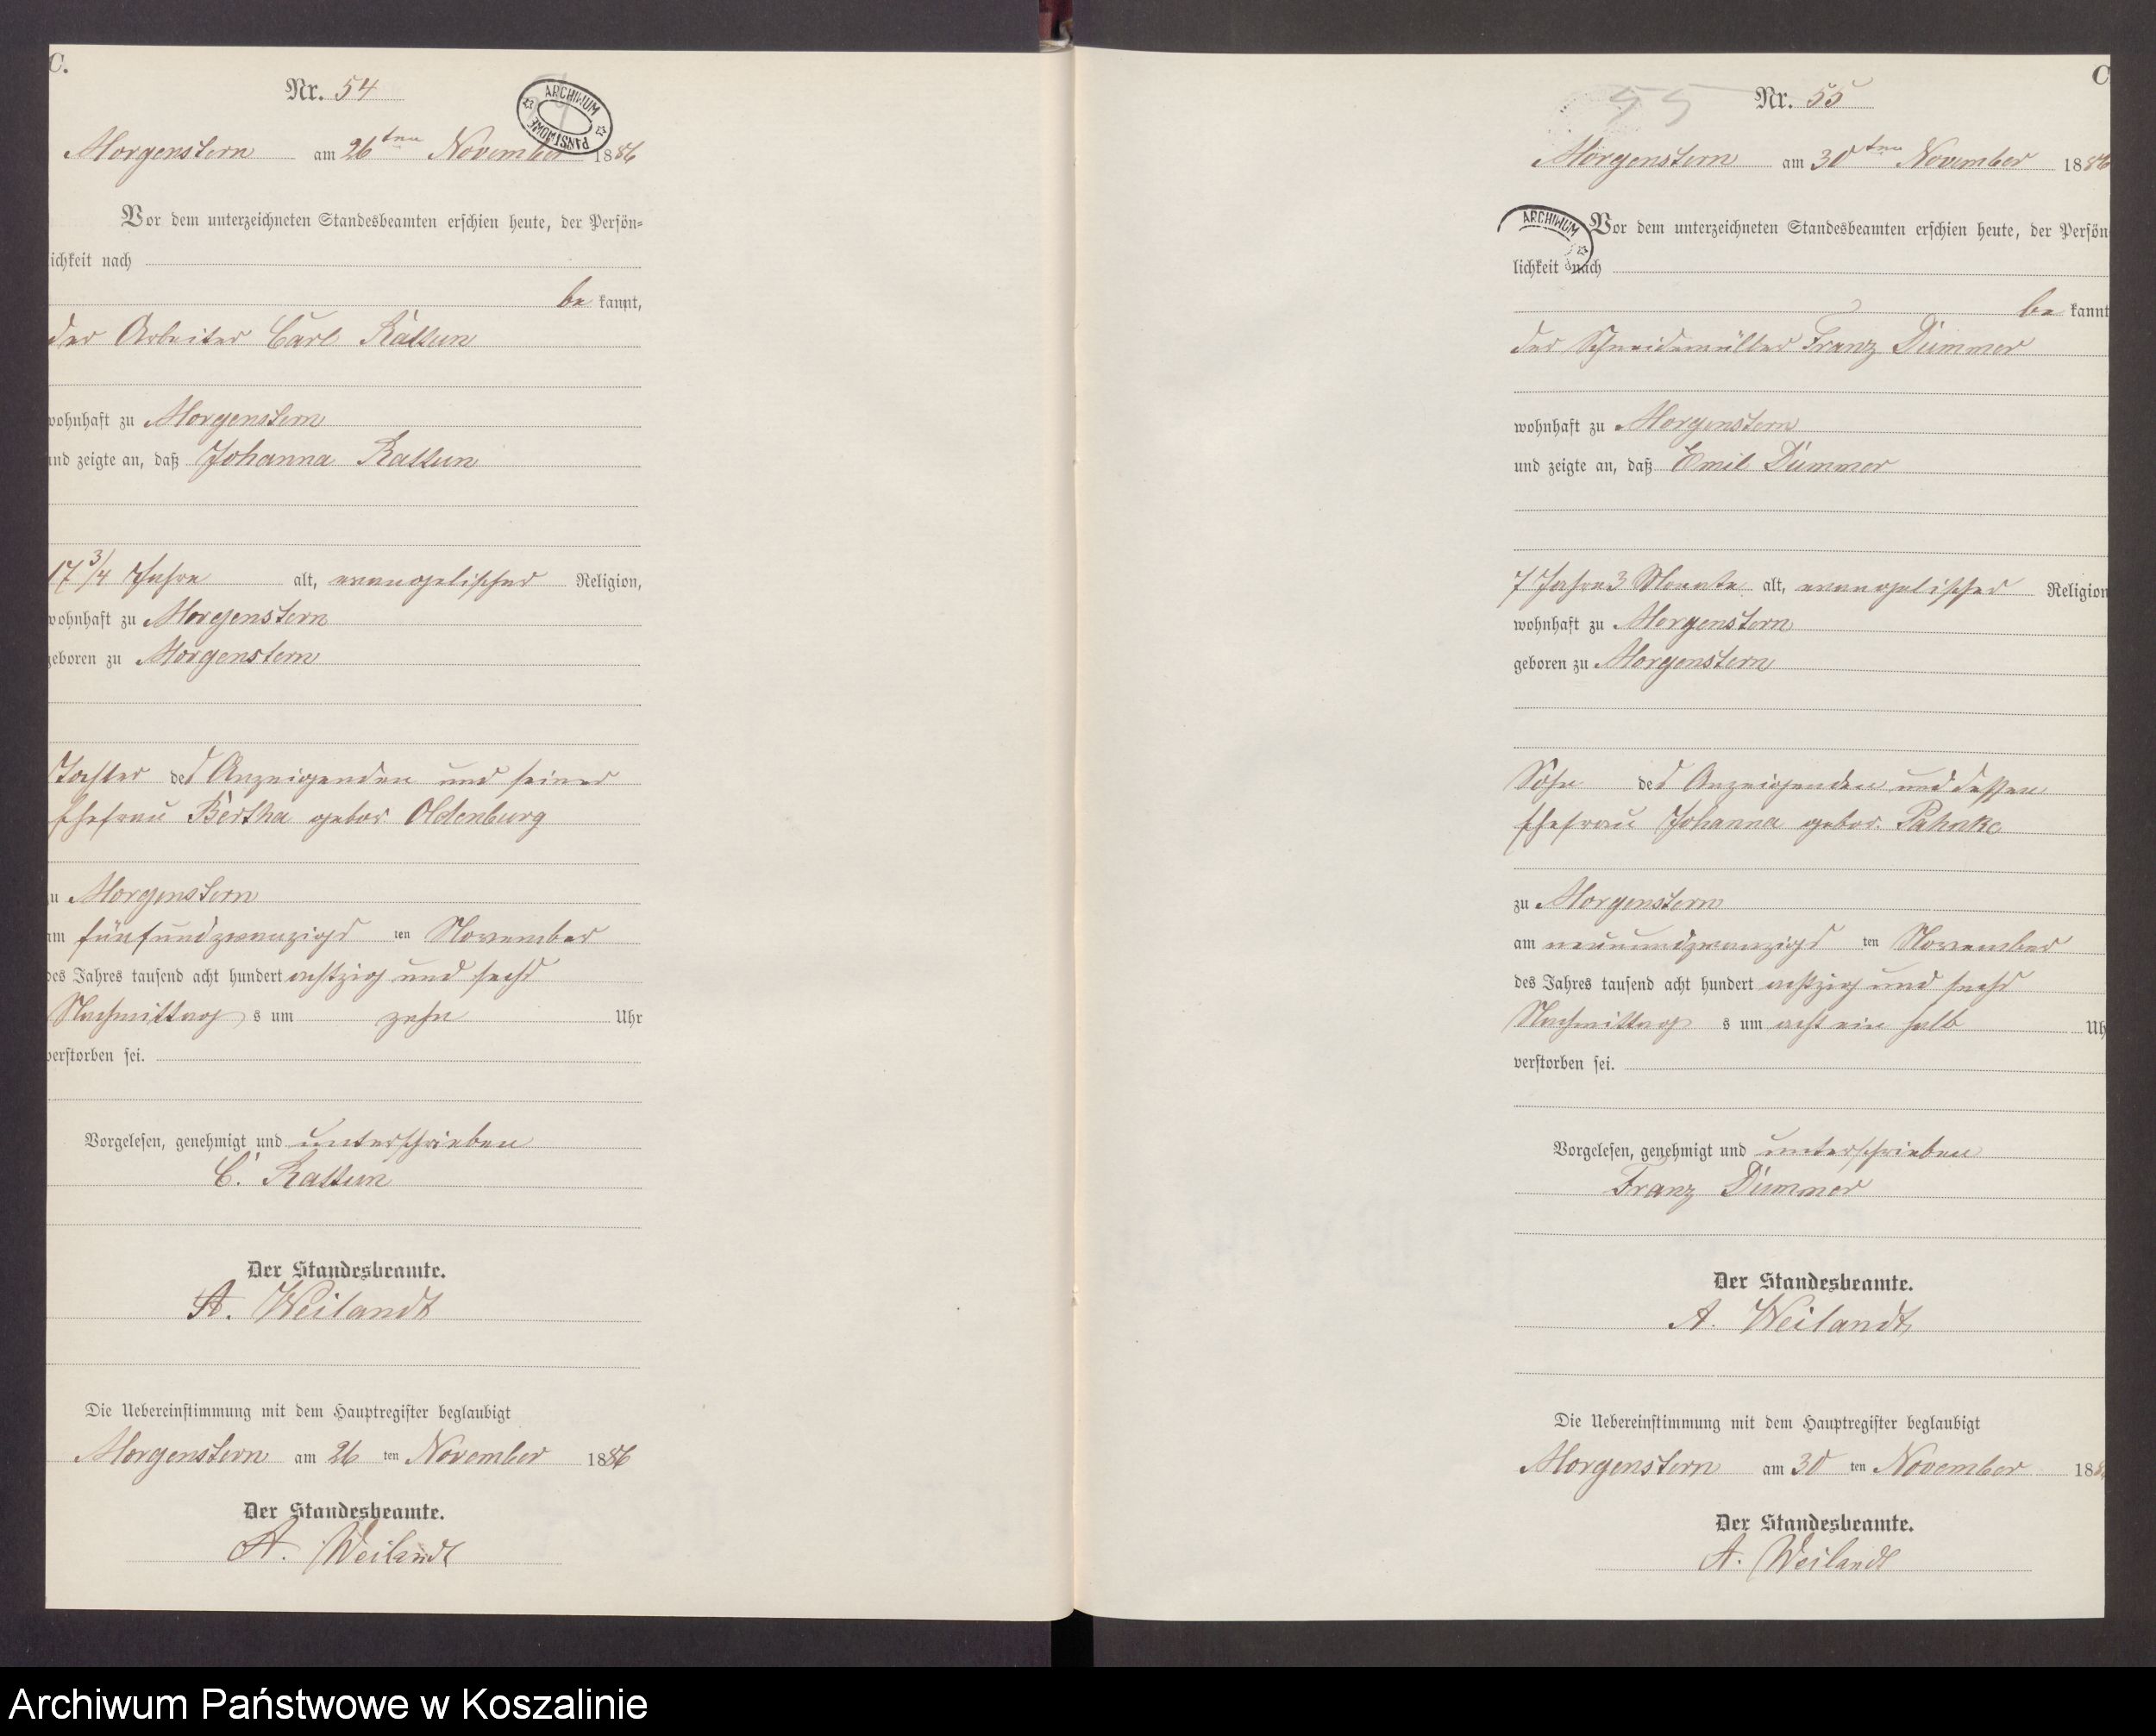 C.
Nr. 54
ARCHIWUM PAŃSTWOWE
Morgenstern am 26ten November 1886
Vor dem unterzeichneten Standesbeamten erschien heute, der Persön-
lichkeit nach
be kannt,
der Arbeiter Carl Rattun
wohnhaft zu Morgenstern
und zeigte an, daß Johanna Rattun
17 3/4 Jahre alt, evangelischer Religion,
wohnhaft zu Morgenstern
geboren zu Morgenstern
Tochter des Anzeigenden und seiner
Ehefrau Bertha gebor. Oldenburg
zu Morgenstern
am fünfundzwanzigs ten November
des Jahres tausend acht hundert achtzig und sechs
Nachmittag s um zehn Uhr
verstorben sei.
Vorgelesen, genehmigt und unterschrieben
C. Rattun
Der Standesbeamte.
A. Weilandt
Die Uebereinstimmung mit dem Hauptregister beglaubigt
Morgenstern am 26 ten November 1886
Der Standesbeamte.
A. Weilandt
C
55
Nr. 55
Morgenstern am 30ten November 1886
ARCHIWUM
Vor dem unterzeichneten Standesbeamten erschien heute, der Persön
lichkeit nach
be kannt
der Schneidemüller Franz Dümmer
wohnhaft zu Morgenstern
und zeigte an, daß Emil Dümmer
7 Jahre 3 Monate alt, evangelischer Religion
wohnhaft zu Morgenstern
geboren zu Morgenstern
Sohn des Anzeigenden und dessen
Ehefrau Johanna gebor. Pahnke
zu Morgenstern
am neunundzwanzigs ten November
des Jahres tausend acht hundert achtzig und sechs
Nachmittag s um acht ein halb Uh
verstorben sei.
Vorgelesen, genehmigt und unterschrieben
Franz Dümmer
Der Standesbeamte.
A. Weilandt
Die Uebereinstimmung mit dem Hauptregister beglaubigt
Morgenstern am 30 ten November 188
Der Standesbeamte.
A. Weilandt
Archiwum Państwowe w Koszalinie